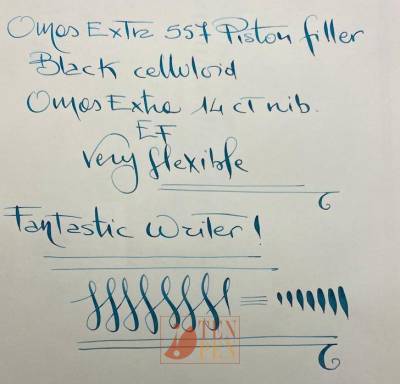 Omas Extra 557 Piston filler
Black celluloid
Omas Extra 14 ct nib.
EF
Very flexible
Fantastic Writer!
TEN
PEN